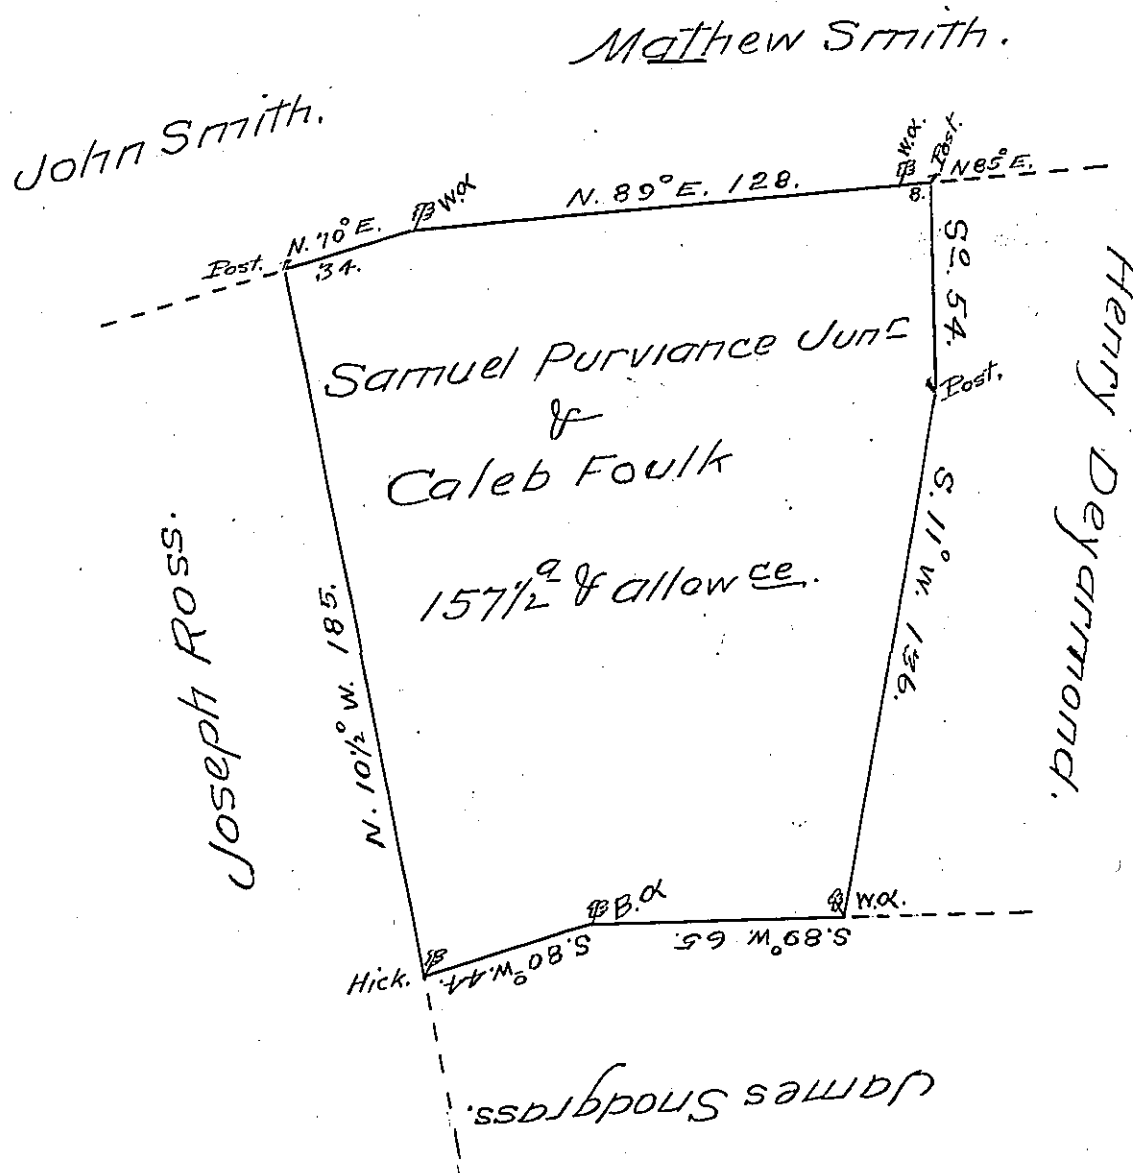 Mathew Smith.
John Smith.
Post. N. 70° E. 34.
W.O.
N. 89° E. 128.
W.O.
8.
Post.
N 85° E.
So. 54.
Post.
S. 11° W. 136.
Henry Deyarmond.
Samuel Purviance Junr
&
Caleb Foulk
157 1/2 a & allowce.
Joseph Ross.
N. 10 1/2° W. 185.
Hick.
S. 80° W. 44.
B.O
S. 89° W. 65.
W.O.
James Snodgrass.